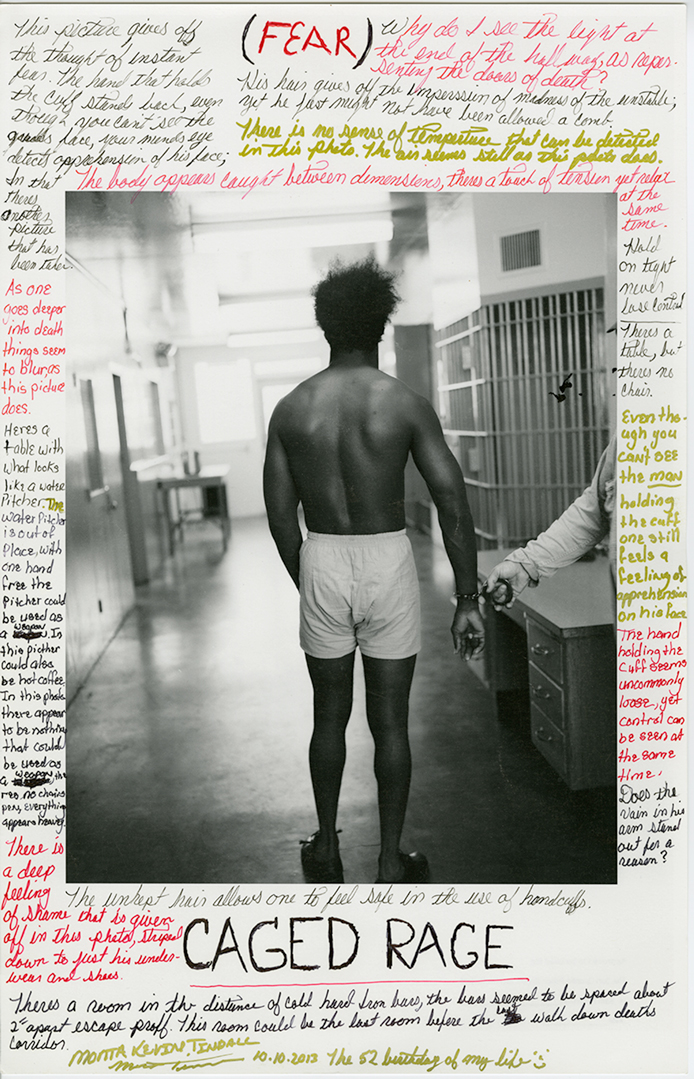 This picture gives off
the thought of instant
fear. The hand that holds
the cuff stands back, even
though you can't see the
guards face, your minds eye
detects apprehension of his face;
In that
theres
another
picture
that has
been taken.
As one
goes deeper
into death
things seem
to blur, as
this picture
does.
Heres a
table with
what looks
like a water
Pitcher. The
water Pitcher
is out of
Place, with
one hand
free the
Pitcher could
be used as
a weapon. In
this picther
could also
be hot coffee.
In this photo
there appear
to be nothing
that could
be used as
a weapon, the
res no chairs
pen, everything
appears heavy.
There is
a deep
feeling
of shame that is given
off in this photo, striped
down to just his under-
wear and shoes.
(FEAR)
Why do I see the light at
the end of the hall way, as repre-
senting the doors of death?
His hair gives off the imperssion of madness of the unstable;
yet he just might not have been allowed a comb.
There is no sense of tempertuce that can be detected
in this photo. The air seems still as this photo does.
The body appears caught between dimensions, theres a touch of tension yet relax
at the
same
time.
Hold
on tight
never
lose control
Theres a
table, but
theres no
chair.
Even tho-
ugh you
can't see
the man
holding
the cuff
one still
feels a
feeling of
apprehension
on his face
The hand
holding the
cuff seems
uncommonly
loose, yet
control can
be seen at
the same
time.
Does the
vain in his
arm stand
out for a
reason?
The unkept hair allows one to feel safe in the use of handcuffs.
CAGED RAGE
Theres a room in the distance of cold hard Iron bars, the bars seemed to be spared about
2" apart escape proff. This room could be the last room before the last walk down deaths
corridor.
MONTA KEVIN TINDALL
10.10.2013 The 52 birthday of my life